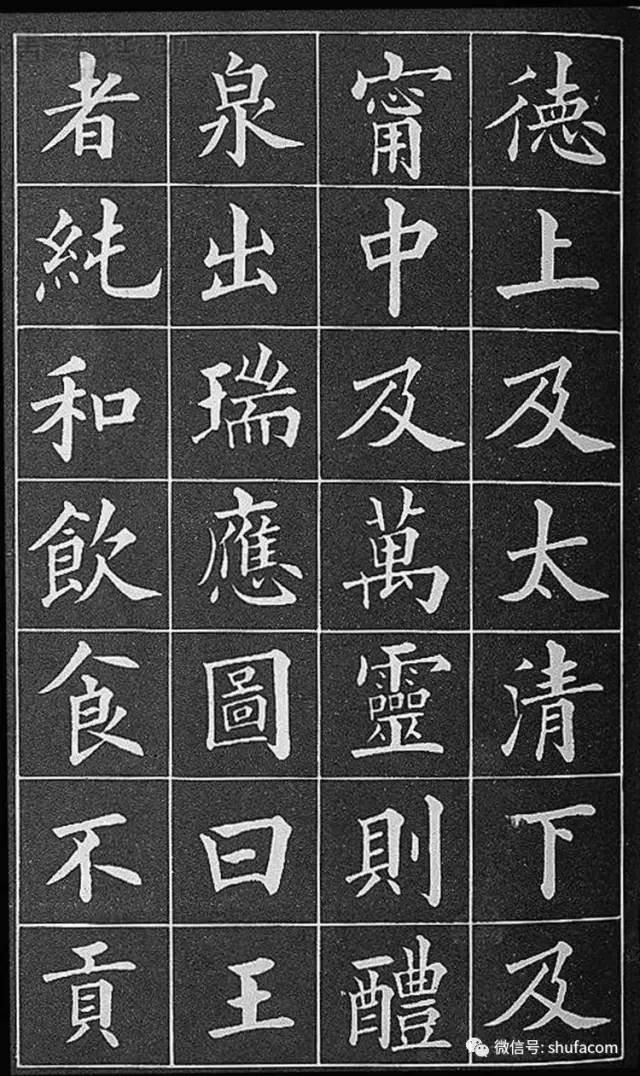 德上及太清下及
甯中及萬靈則醴
泉出瑞應圖曰王
者純和飲食不貢
微信号: shufacom